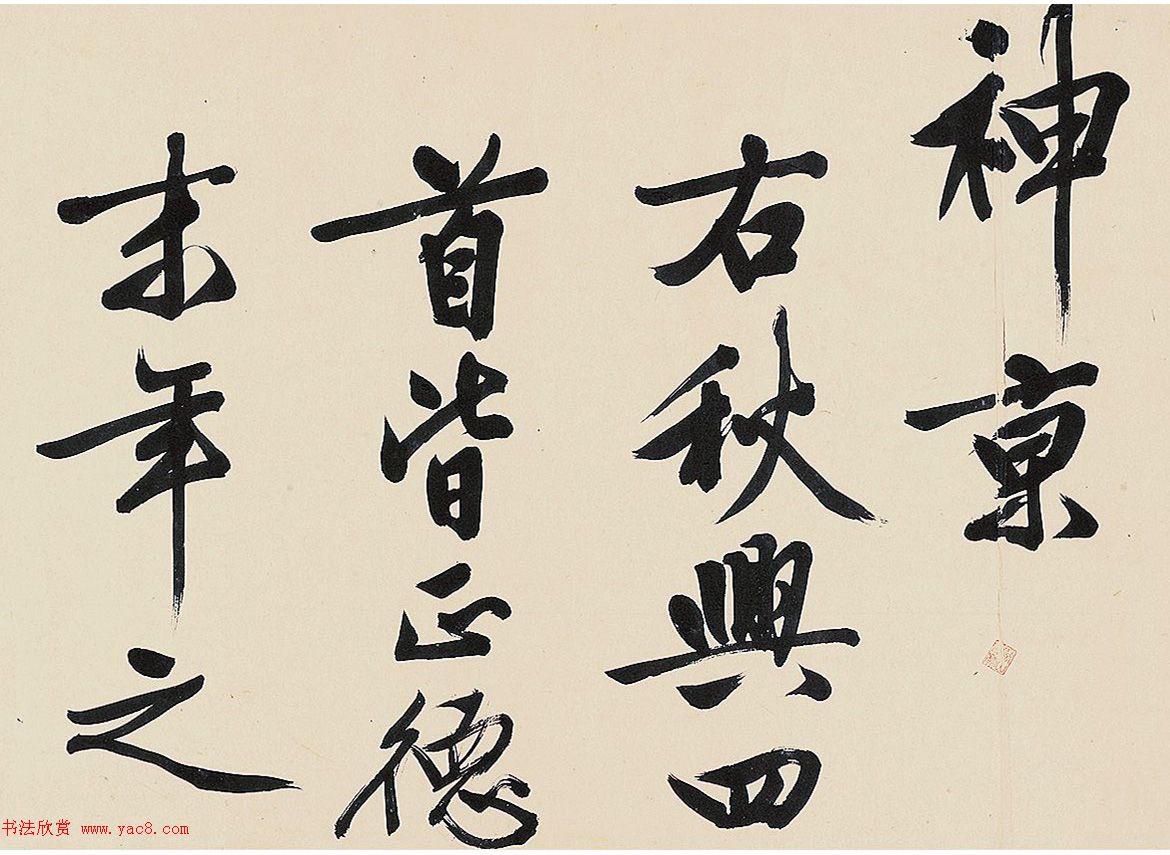 神京
右秋興四
首皆正德
末年之
书法欣赏 www.yac8.com